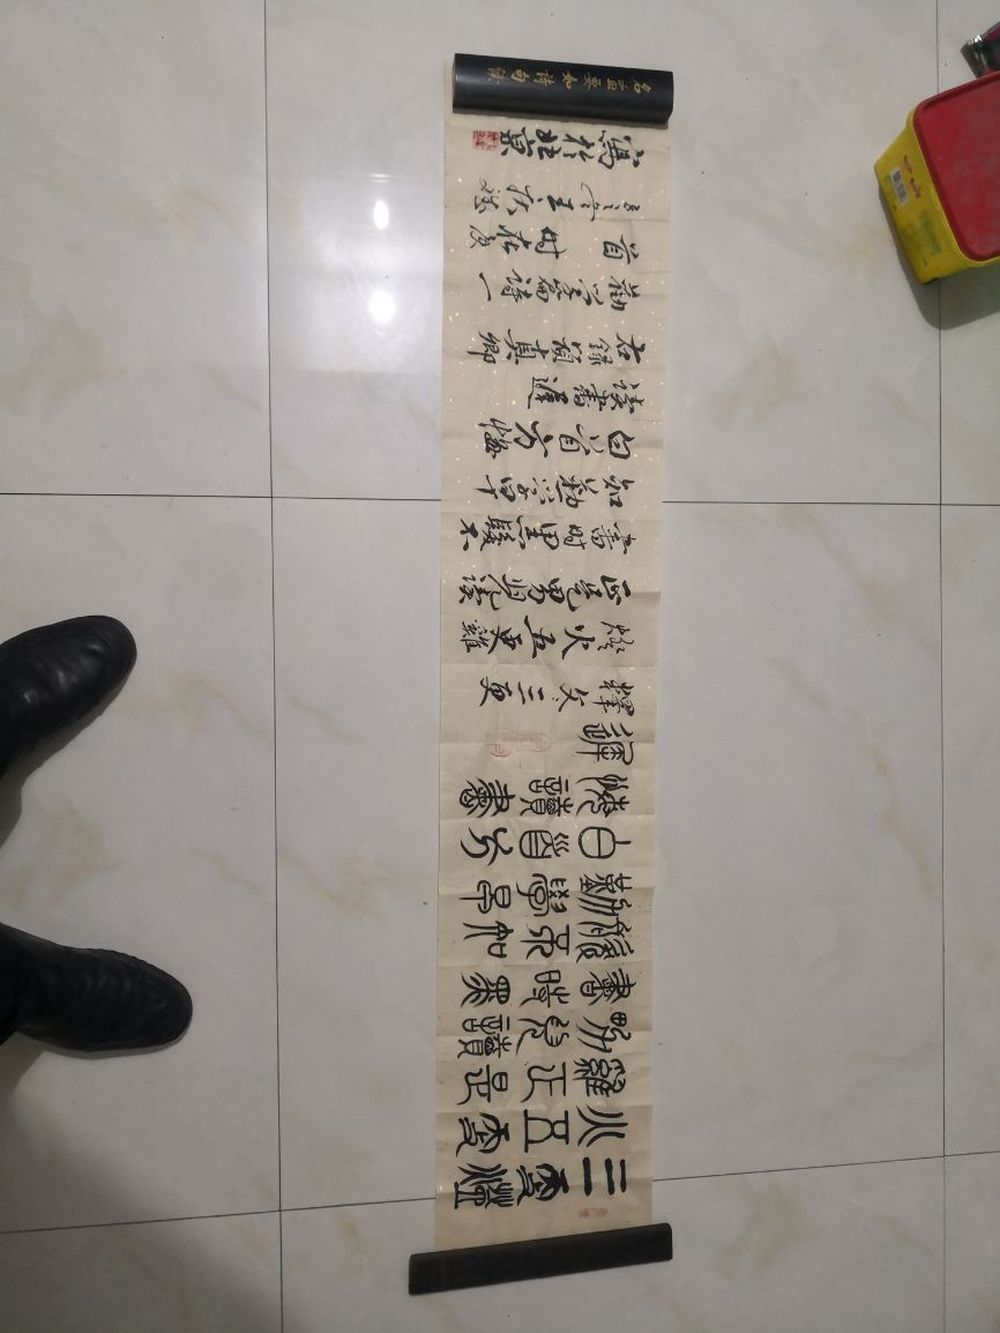 三更燈
火五更
雞正是
男兒讀
書時黑
髮不知
勤學早
白首方
悔讀書
遲
釋文三更
燈火五更雞
正是男兒读
書時黑髮不
知勤学早
白首方悔
读書遲
右録顏真卿
勸学篇詩一
首時在
寫於北京
名画要如诗句读